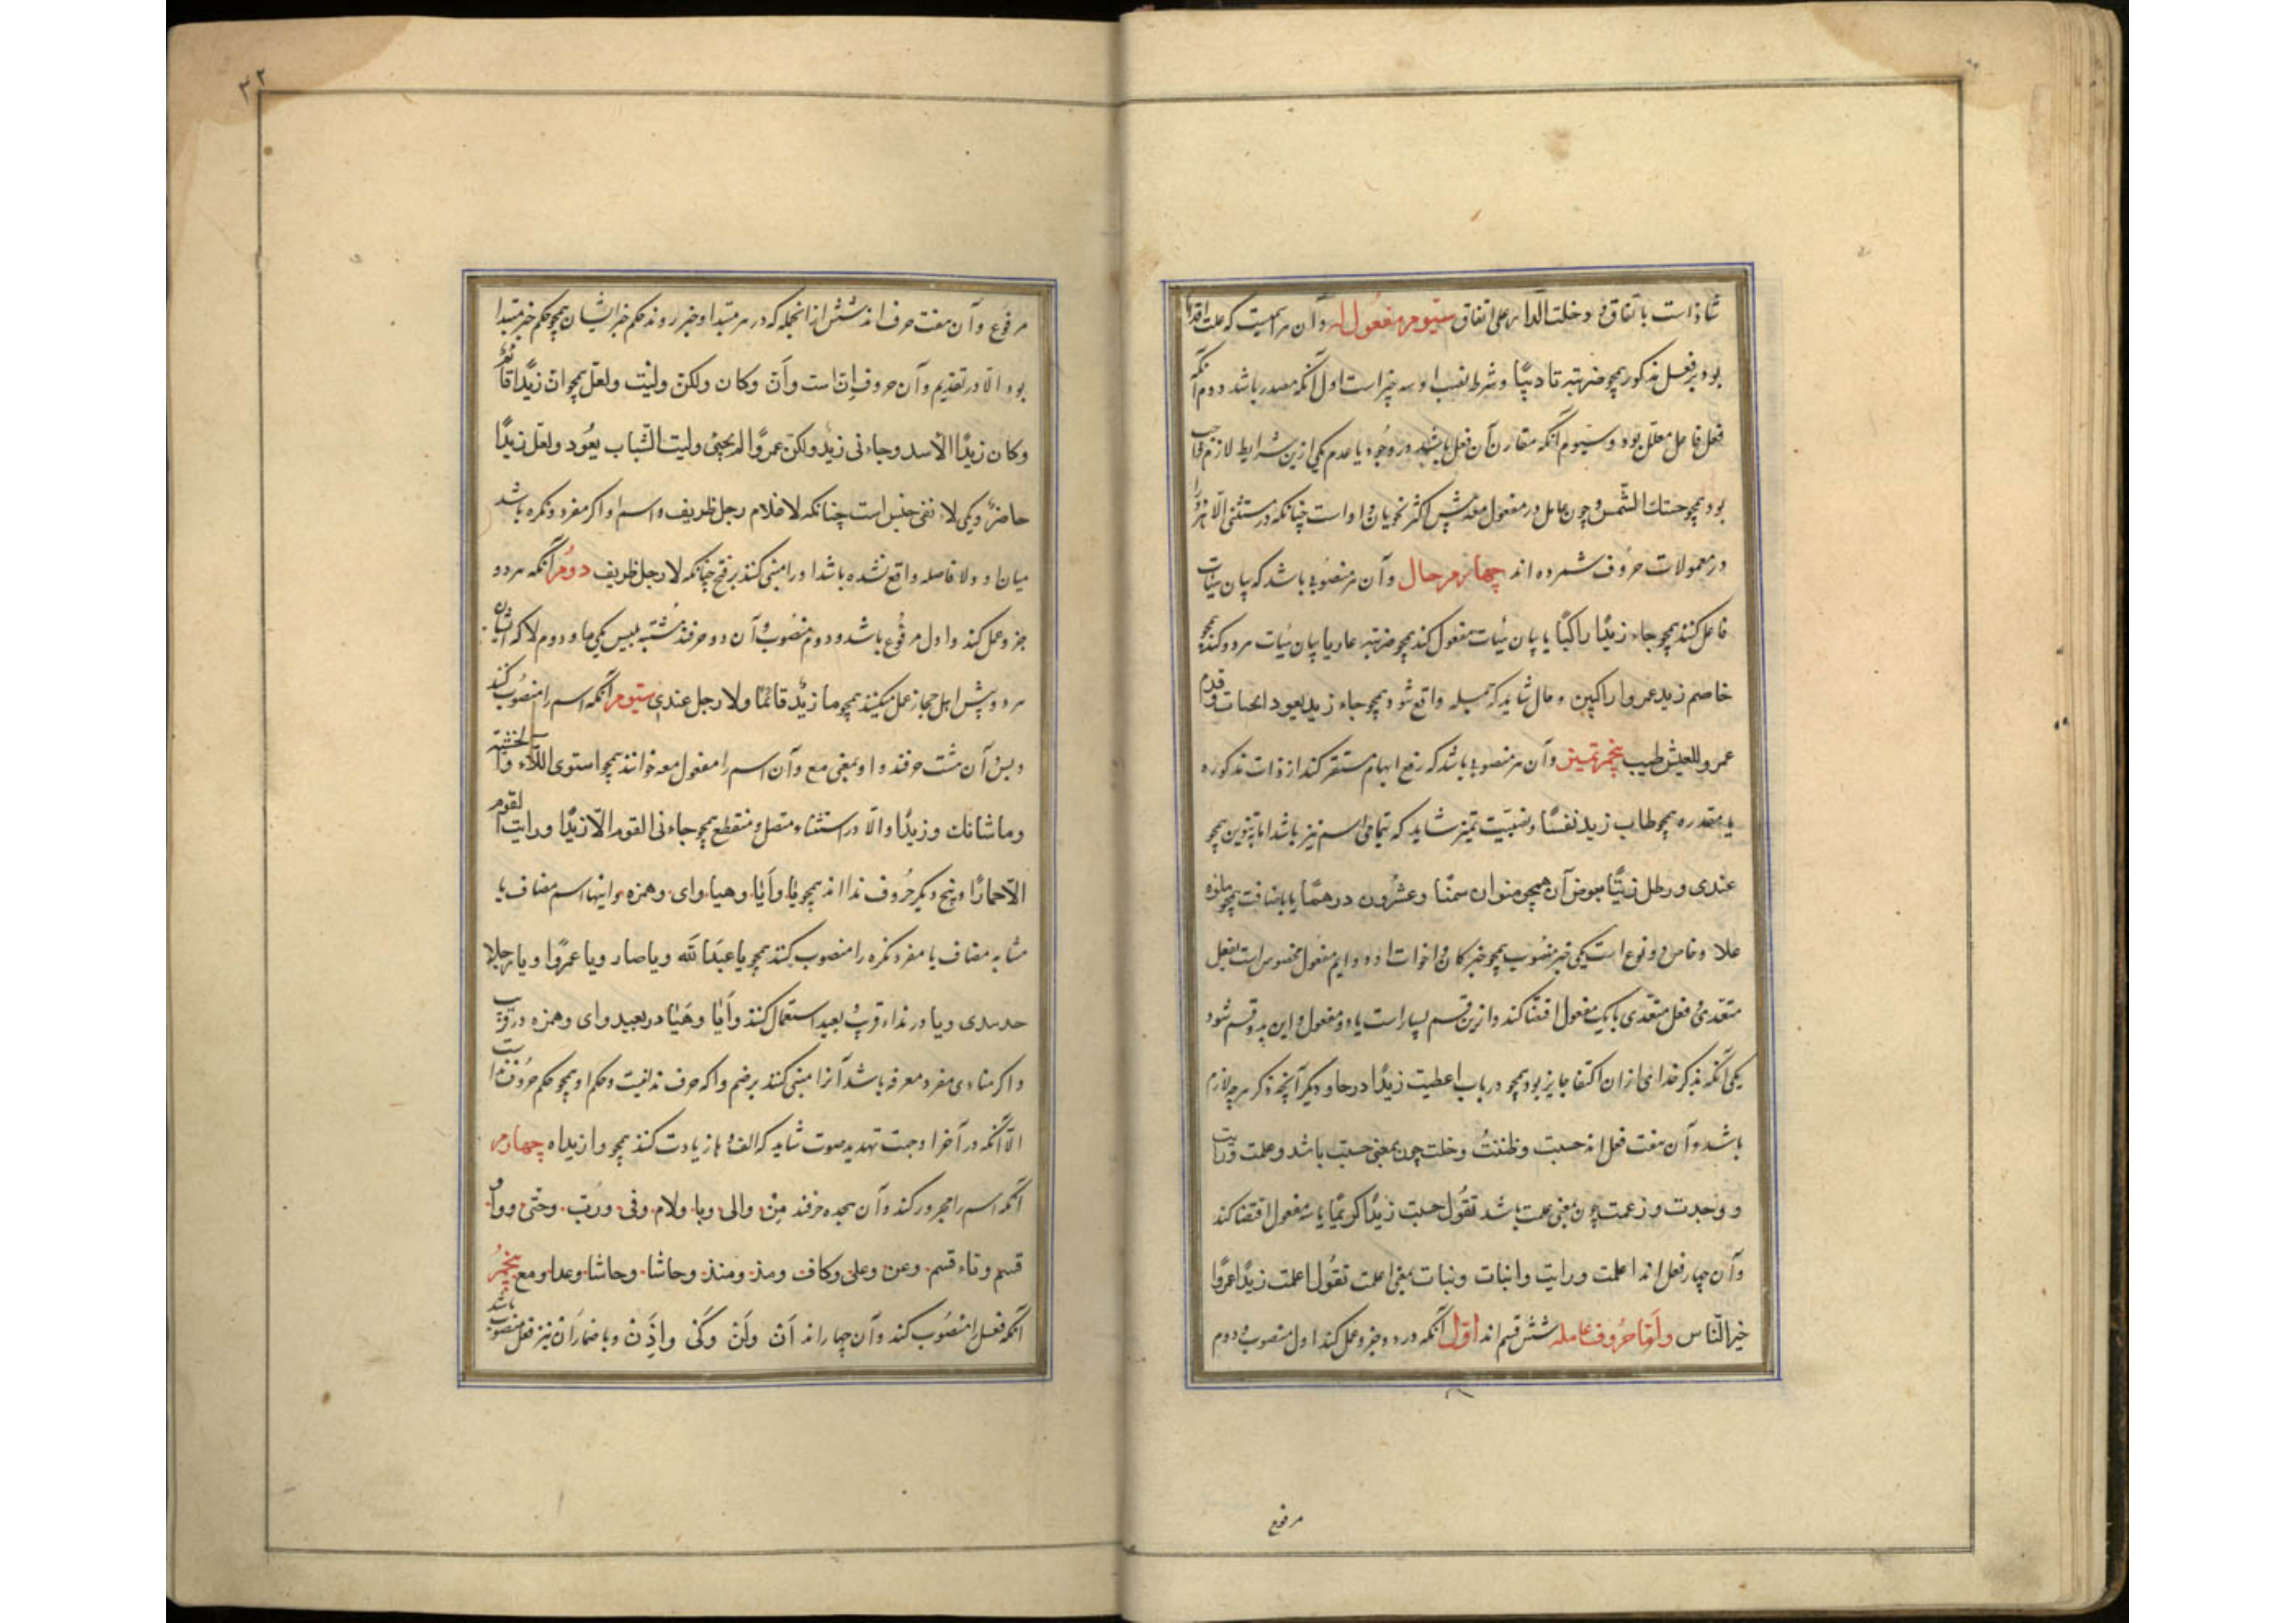 شاذ است باتفاق و دخلت الدار علی اتفاق سیوم مفعول له و آن هر اسمیست که علت اقدام
بود بر فعل مذکور همچو ضربته تادیبًا و شرط نصب او سه چیز است اول آنکه مصدر باشد دوم آنکه
فعل فاعل معلل بود و سیوم آنکه مقارن آن فعل باشد در وجود یا عدم یکی ازین شرایط لازم واجب
بود همچو جئتك الشمس و چون عامل در مفعول معه پیش اکثر نحویان واو است چنانکه در مستثنی الا هر دو را
در معمولات حروف شمرده اند چهارم حال و آن هر منصوبی باشد که بیان هیأت
فاعل کنند همچو جاء زیدًا راکبًا یا بیان هیأت مفعول کند همچو ضربته عاریا یا بیان هیأت هر دو کند همچو
خاصم زید عمروا راکبین و حال شاید که جمله واقع شود همچو جاء زید یعود
عمرو للعیش طیب پنجم تمییز و آن هر منصوبی باشد که رفع ابهام مستقر کند از ذات مذکوره
یا مقدره همچو طاب زید نفسًا و نصبیت تمیز شاید که تمامی اسم نیز باشد اما بتنوین همچو
عندی و رطل زیتًا بعوض آن همچو منوان سمنًا و عشرون درهمًا یا باضافت همچو ملؤه
علا و خاص دو نوع است یکی خبر منصوب همچو خبر کان و اخوات او دوم مفعول مخصوص است بفعل
متعدی و فعل متعدی یا یک مفعول اقتضا کند و ازین قسم بسیار است یا دو مفعول و این بدو قسم شود
یکی آنکه بذکر احدی از ان اکتفا جایز بود همچو در باب اعطیت زیدًا درها و دیگر آنچه ذکر هر چه لازم
باشد و آن هفت فعل اند حسبت و ظننتُ و خلت چون بمعنی حسبت باشد و علمت و رایت
و وجدت و زعمت چون بمعنی علمت باشد تقول حسبت زیدًا کریمًا یا سه مفعول اقتضا کند
و آن چهار فعل اند اعلمت و رایت و انبات و نبات بمعنی اعلمت تقول اعلمت زیدًا عمروًا
خیر الناس و امّا حروف عامله شش قسم اند اول آنکه در دو جزو عمل کند اول منصوب و دوم
مرفوع
۳۲
مرفوع و آن هفت حرف اند شش ازانجمله که در هر مبتدا و خبر روند حکم خبر ایشان همچو حکم خبر مبتدا
بود الّا در تقدیم و آن حروف إنّ است و أنّ و کان و لکن و لیت و لعل همچو ان زیدًا قائم
و کان زیدًا الاسد و جاءنی زید و لکن عمروًا لم یجئ و لیت الشباب یعود و لعل زیدًا
حاضر و یکی لاء نفی جنس است چنانکه لا غلام رجل ظریف و اسم او اکر مفرد و نکره باشد
میان او و لا فاصله واقع نشده باشد او را مبنی کنند بر فتح چنانکه لا رجل ظریف دوم آنکه هر دو
جزو عمل کند و اول مرفوع باشد و دوم منصوب و آن دو حرفند مشبه بلیس یکی ما و دوم لا که ایشان
هر دو پیش اهل حجاز عمل میکنند همچو ما زید قائمًا و لا رجل عندی سیوم آنکه اسم را منصوب کند
و بس و آن هشت حرفند واو بمعنی مع و آن اسم را مفعول معه خوانند همچو استوی الماء و الخشبة
و ما شانك و زیدًا و الّا در استثناء متصل و منقطع همچو جاءنی القوم الّا زیدًا و رایت القوم
الّا حمارًا و پنج دیگر حروف ندا اند همچو یا و أیا و هیا و ای و همزه و اینها اسم مضاف یا
مشابه مضاف یا مفرد نکره را منصوب کنند همچو یا عبدَ الله و یا ضارب و یا عمروًا و یا رجلا
خذ بیدی و یا در نداء قریب و بعید استعمال کنند و أیا و هَیا در بعید و ای و همزه در قریب
و اکر منادی مفرد معرفه باشد آنرا مبنی کنند بر ضم و اکه حرف ندا نیست و حکم او همچو حکم حروف ندا
الّا آنکه در آخر او جهت تمدید صوت شاید که الف و ها زیادت کنند همچو وا زیداه چهارم
آنکه اسم را مجرور کند و آن هجده حرفند مِن و الی و با و لام و فی و رُبّ و حتّی و واو
قسم و تاء قسم و عن و علی و کاف و مذ و منذ و حاشا و حاشا و عدا و مع پنجم
آنکه فعل را منصوب کند و آن چهار اند أن و لَن و کَی و إذَن و باضمار أن نیز فعل منصوب باشد